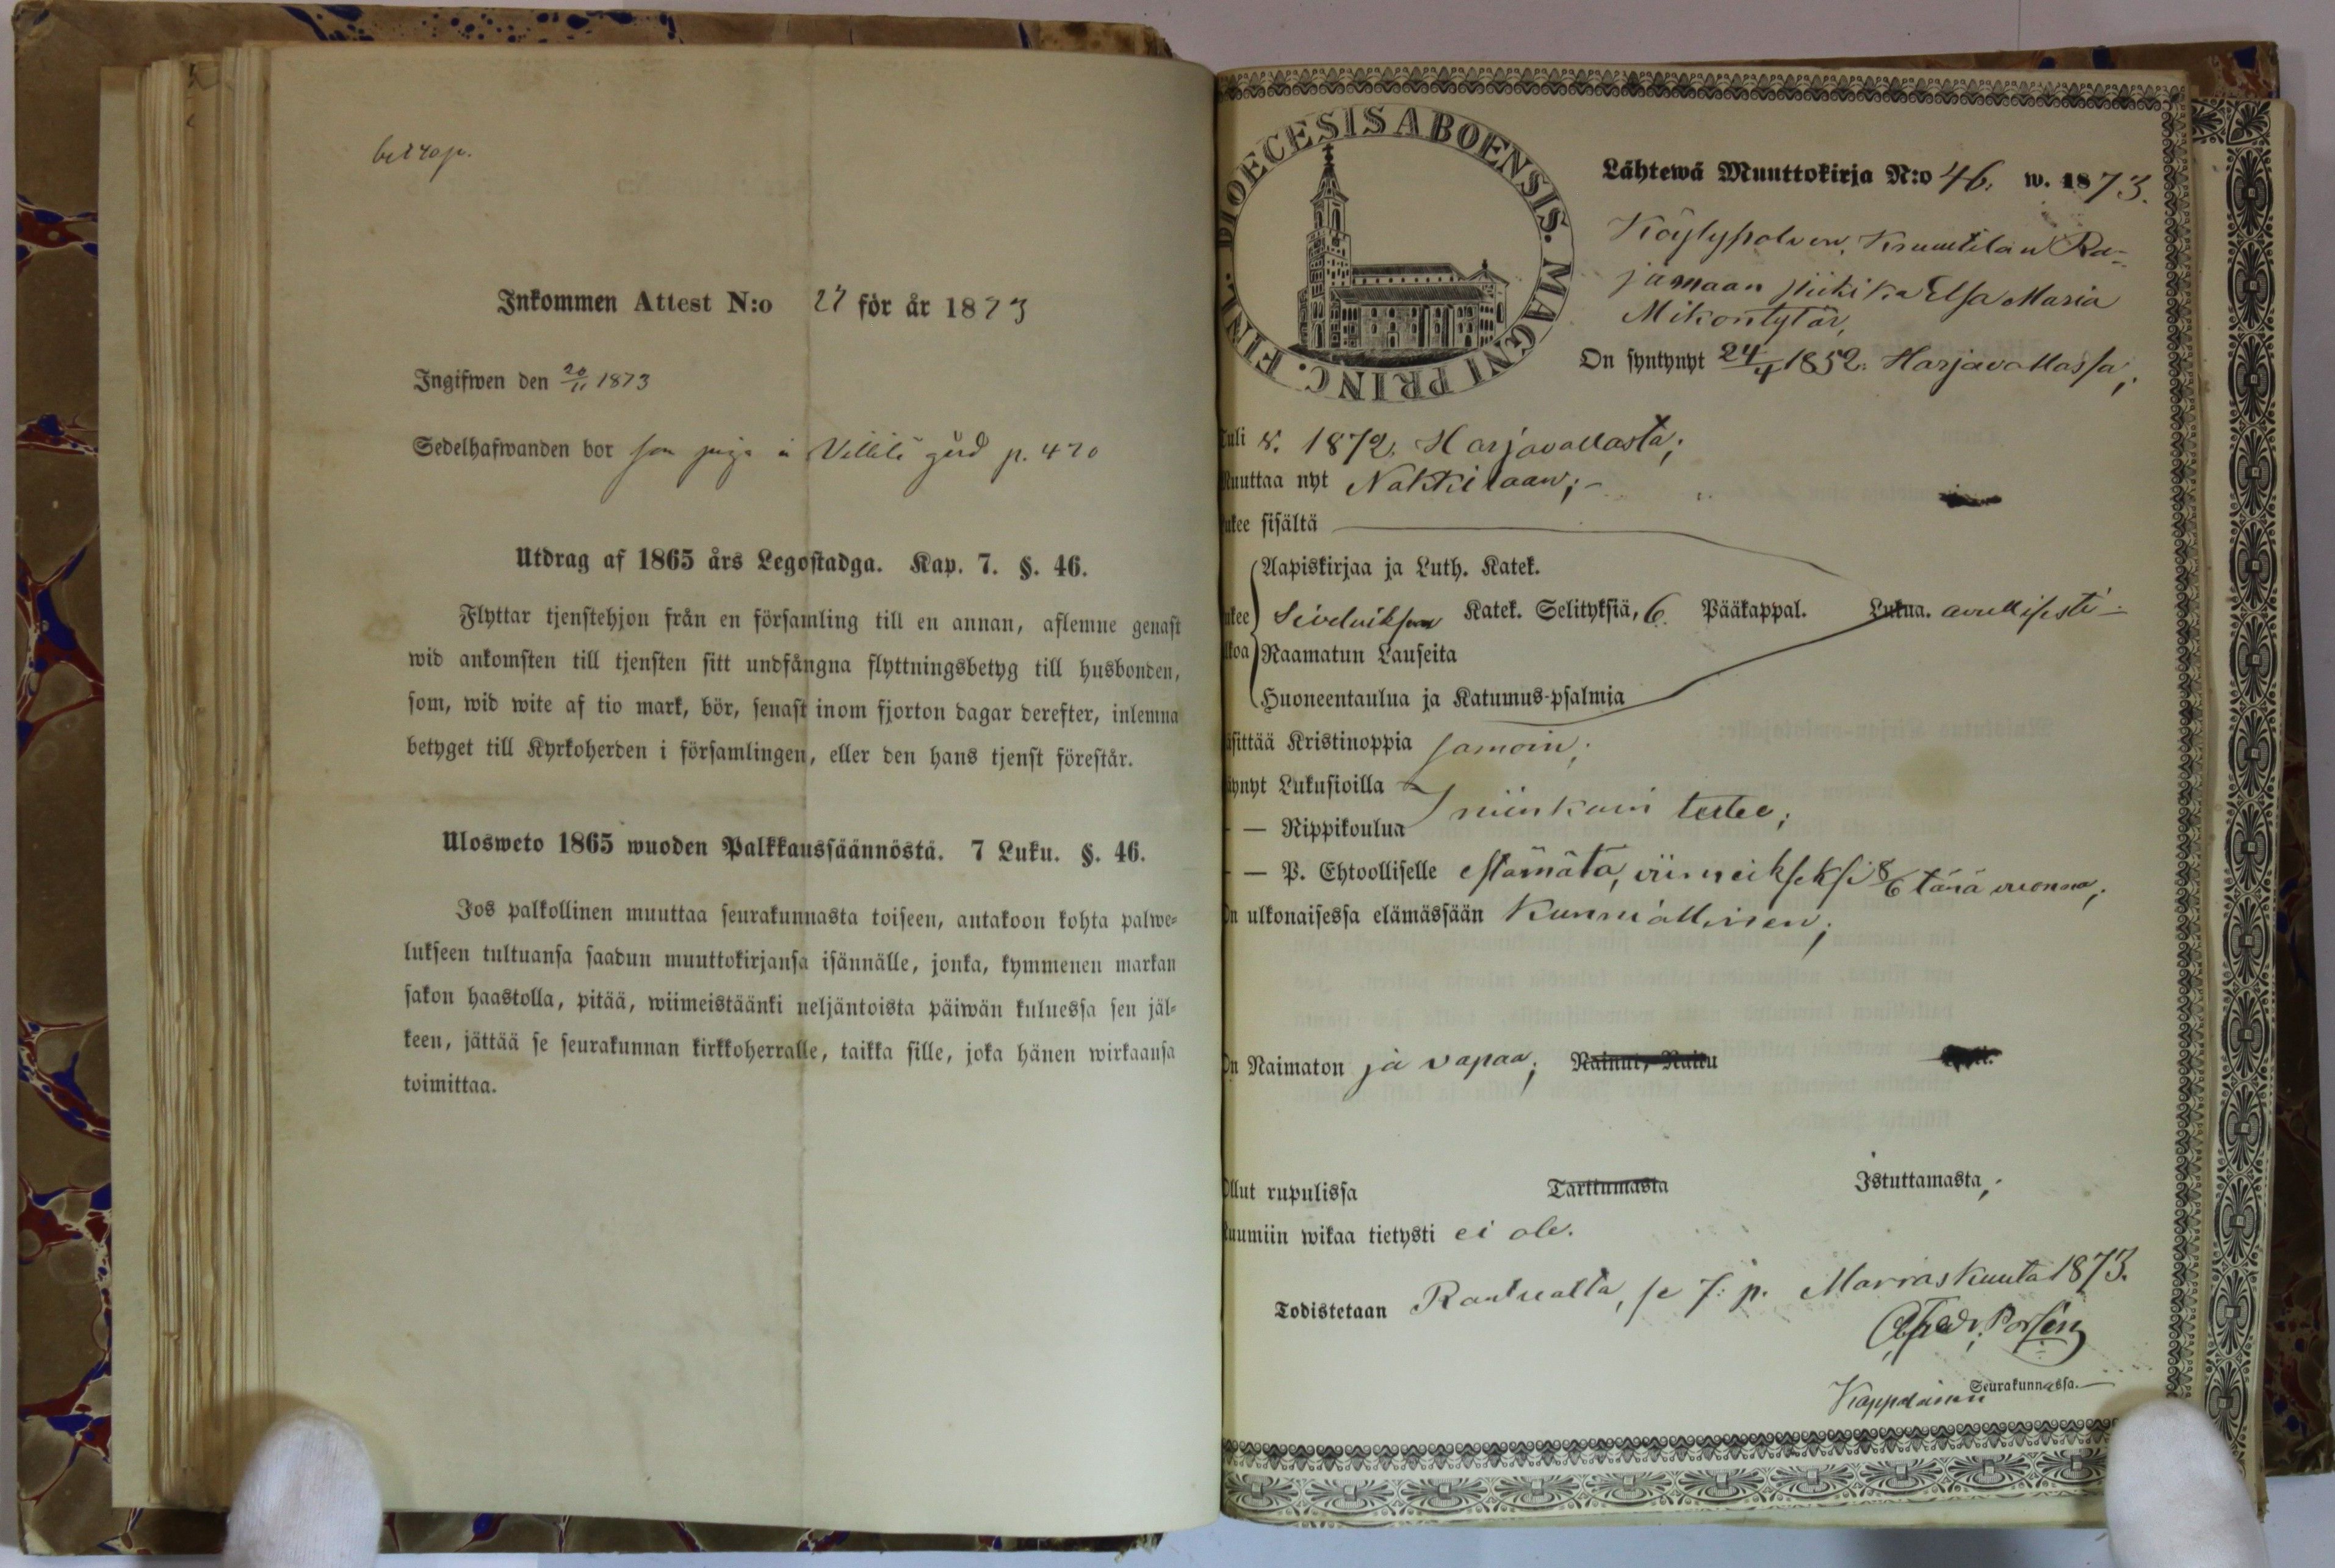 Inkommen Attest N:o 27 för år 1873
Ingifwen den 20/11 1873
Sedelhafwanden bor som piga i Villilä gård p. 420
Utdrag af 1865 års Legostadga. Kap. 7. §. 46.
Flyttar tjenstehjon från en församling till en annan, aflemne genast
wid ankomsten till tjensten sitt undfångna flyttningsbetyg till husbonden,
som, wid wite af tio mark, bör, senast inom fjorton dagar derefter, inlemna
betyget till Kyrkoherden i församlingen, eller den hans tjenst förestår.
Ulosweto 1865 wuoden Palkkaussäännöstä. 7 Luku. §. 46.
Jos palkollinen muuttaa seurakunnasta toiseen, antakoon kohta palwe-
lukseen tultuansa saadun muuttokirjansa isännälle, jonka, kymmenen markan
sakon haastolla, pitää, wiimeistäänki neljäntoista päiwän kuluessa sen jäl-
keen, jättää se seurakunnan kirkkoherralle, taikka sille, joka hänen wirkaansa
toimittaa.
DIOECESIS ABOENSIS. MAGNI PRINC. FINL.
Lähtewä Muuttokirja N:o 46. w. 1873.
Köylypolven, Kruutilan Ra-
jamaan piika Elsa Maria
Mikontytär,
On syntynyt 24/4 1852. Harjavallassa;
Tuli v. 1872. Harjavallasta;
Muuttaa nyt Nakkilaan;-
ukee sisältä
Aapiskirjaa ja Luth. Katek.
Katek. Selityksiä, 6 Pääkappal. Lukua. avullisesti
Raamatun Lauseita
Huoneentaulua ja Katumus-psalmia
äsittää Kristinoppia samoin;
äynyt Lukusioilla
— Rippikoulua niinkuin
— P. Ehtoolliselle estämätä, viimeikseksi 8/6 tänä vuonna;
On ulkonaisessa elämässään kunniallinen;
On Naimaton ja vapaa; Nainut, Naitu
Ollut rupulissa Tarttumasta Istuttamasta,
Ruumiin wikaa tietysti ei ole.
Todistetaan se 7. p. Marraskuuta 1873.
Kappalainen Seurakunnassa.